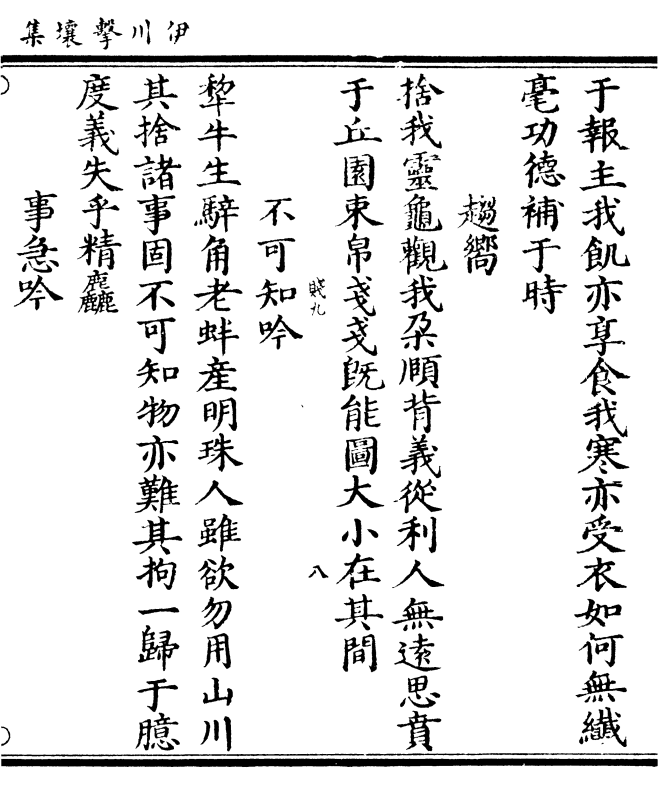 伊川擊壤集
于報主我飢亦享食我寒亦受衣如何無纖
毫功德補于時
趨嚮
捨我靈龜觀我朶頤背義從利人無遠思賁
于丘園束帛戔戔旣能圖大小在其間
賤九
八
不可知吟
犂牛生騂角老蚌産明珠人雖欲勿用山川
其捨諸事固不可知物亦難其拘一歸于臆
度義失乎精麤
事急吟